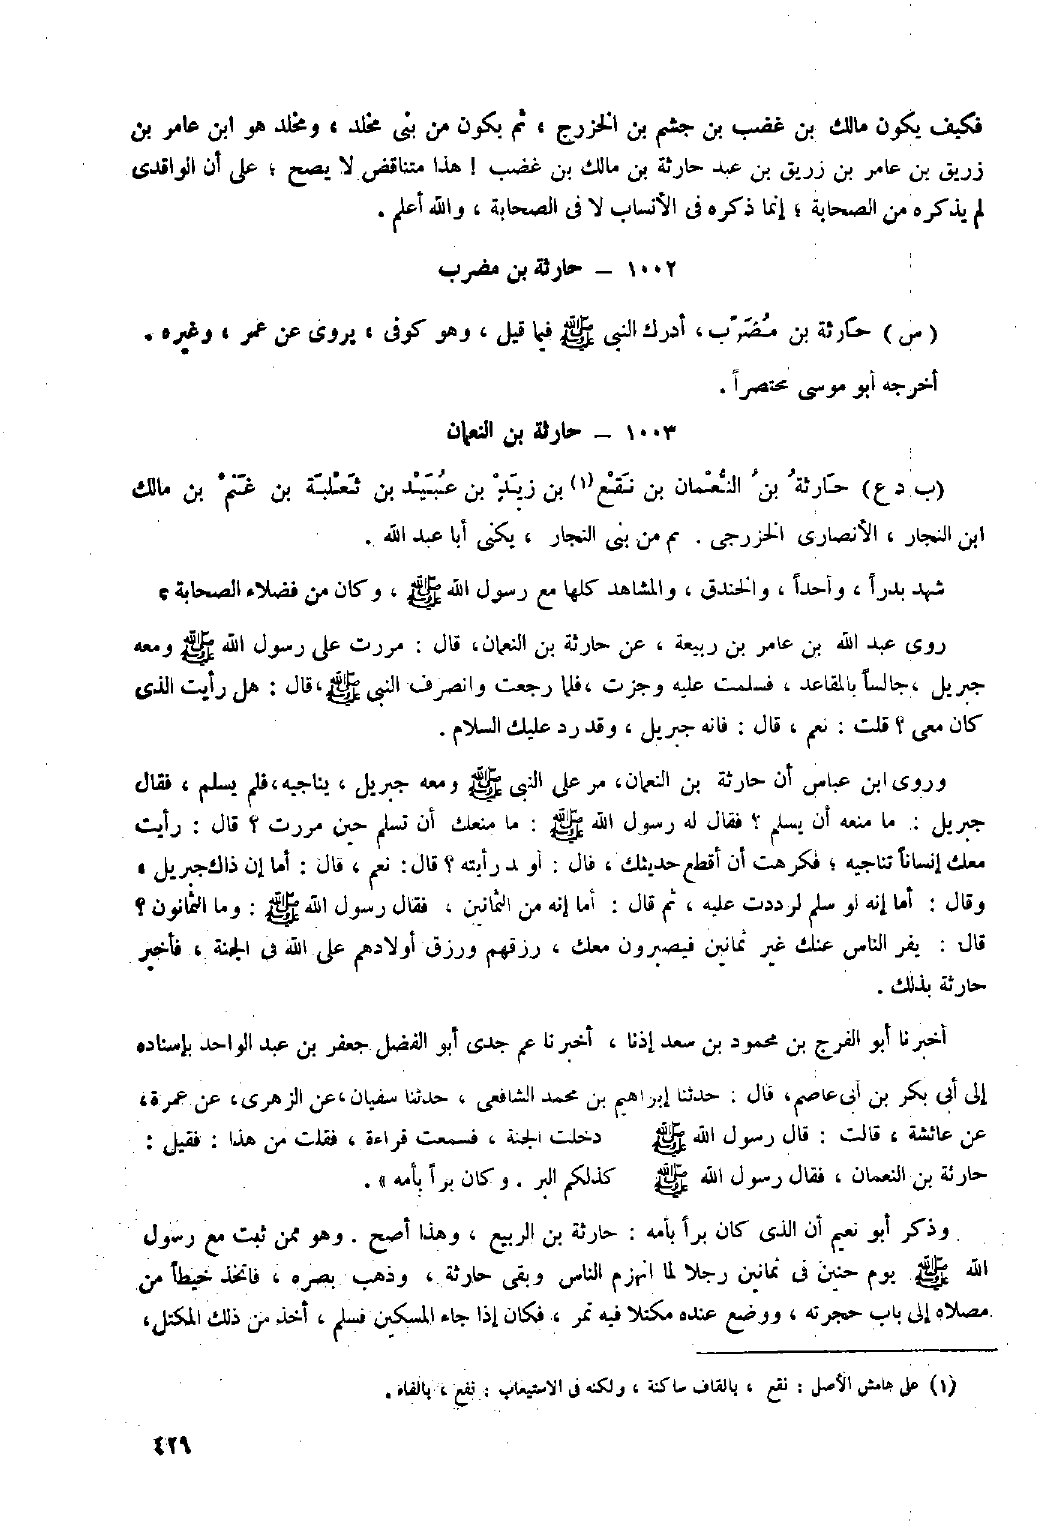 فكيف يكون مالك بن غضب بن جشم بن الخزرج ، ثم يكون من بنى مخلد ، ومخلد هو ابن عامر بن
زريق بن عامر بن زريق بن عبد حارثة بن مالك بن غضب ! هذا متناقض لا يصح ؛ على أن الواقدى
لم يذكره من الصحابة ؛ إنما ذكره فى الأنساب لا فى الصحابة ، والله أعلم .
١٠٠٢ – حارثة بن مضرب
( س ) حَارثة بن مُضَرّب، أدرك النبى ﷺ فيما قيل ، وهو كوفى ، يروى عن عمر ، وغيره .
أخرجه أبو موسى مختصراً .
١٠٠٣ – حارثة بن النعمان
(ب د ع) حَارثةُ بنُ النُّعْمان بن نَقْع(١) بن زيَدْ بن عبُيَدْ بن ثَعْلبَة بن غَنمْ بن مالك
ابن النجار ، الأنصارى الخزرجى . ثم من بنى النجار ، يكنى أبا عبد الله .
شهد بدراً ، وأحداً ، والخندق ، والمشاهد كلها مع رسول الله ﷺ ، وكان من فضلاء الصحابة ؛
روى عبد الله بن عامر بن ربيعة ، عن حارثة بن النعمان، قال : مررت على رسول الله ﷺ ومعه
جبريل ،جالساً بالمقاعد ، فسلمت عليه وجزت ،فلما رجعت وانصرف النبى ﷺ ،قال : هل رأيت الذى
كان معى ؟ قلت : نعم ، قال : فانه جبريل ، وقد رد عليك السلام .
وروى ابن عباس أن حارثة بن النعمان، مر على النبى ﷺ ومعه جبريل ، يناجيه،فلم يسلم ، فقال
جبريل : ما منعه أن يسلم ؟ فقال له رسول الله ﷺ : ما منعك أن تسلم حين مررت ؟ قال : رأيت
معك إنساناً تناجيه ؛ فكرهت أن أقطع حديثك ، قال : أو لد رأيته ؟ قال: نعم ، قال : أما إن ذاك جبريل ،
وقال : أما إنه لو سلم لرددت عليه ، ثم قال : أما إنه من الثمانين ، فقال رسول الله ﷺ : وما الثمانون ؟
قال : يفر الناس عنك غير ثمانين فيصبرون معك ، رزقهم ورزق أولادهم على الله فى الجنة ، فأخبر
حارثة بذلك .
أخبرنا أبو الفرج بن محمود بن سعد إذنا ، أخبرنا عم جدى أبو الفضل جعفر بن عبد الواحد بإسناده
إلى أبى بكر بن أبى عاصم، قال : حدثنا إبراهيم بن محمد الشافعى ، حدثنا سفيان،عن الزهرى، عن عمرة،
عن عائشة ، قالت : قال رسول الله ﷺ دخلت الجنة ، فسمعت قراءة ، فقلت من هذا : فقيل :
حارثة بن النعمان ، فقال رسول الله ﷺ كذلكم البر . وكان براً بأمه » .
وذكر أبو نعيم أن الذى كان براً بأمه : حارثة بن الربيع ، وهذا أصح . وهو ممن ثبت مع رسول
الله ﷺ يوم حنين فى ثمانين رجلا لما انهزم الناس وبقى حارثة ، وذهب بصره ، فاتخذ خيطاً من
مصلاه إلى باب حجرته ، ووضع عنده مكتلا فيه تمر ، فكان إذا جاء المسكين فسلم ، أخذ من ذلك المكتل،
(١) على هامش الأصل : نقع ، بالقاف ساكنة ، ولكنه فى الاستيعاب : نفع ، بالفاء .
٤٢٩